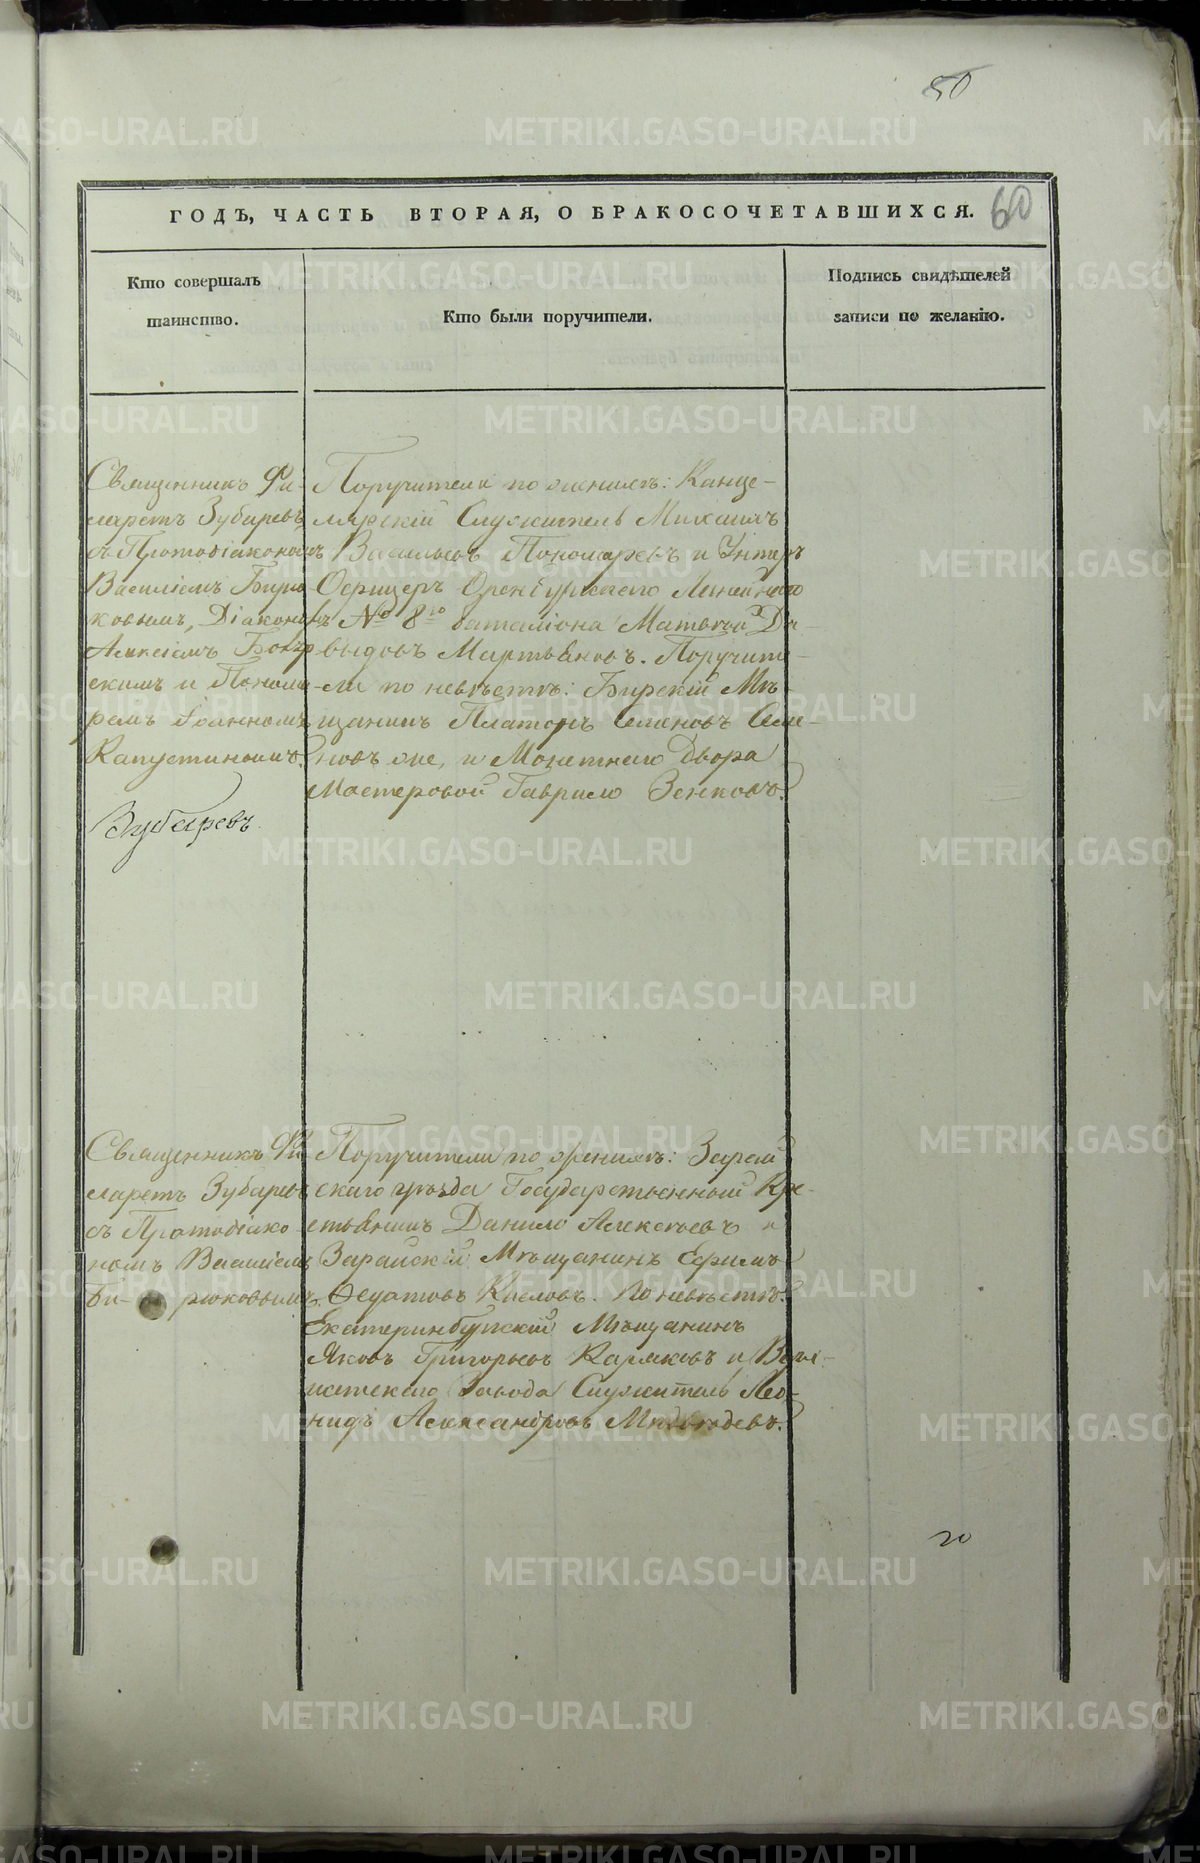 50
ГОДЪ, ЧАСТЬ ВТОРАЯ, О БРАКОСОЧЕТАВШИХСЯ.
60
Кто совершалъ
таинство.
Кто были поручители.
Подпись свидѣтелей
записи по желанію.
Священникъ Фи-
ларетъ Зубаревъ,
съ Протодіакономъ
Василіемъ Бирю-
ковымъ, Діакономъ
Алексіемъ
скимъ и Понома-
ремъ Іоанномъ
Капустинымъ.
Зубаревъ
Поручители по женихѣ: Канце-
лярскій Служитель Михаилъ
Васильевъ Пономаревъ и Унтеръ
Офицеръ Оренбургскаго Линейнаго
№ 8го баталіона Матвей Да-
выдовъ Мартьяновъ. Поручите-
ли по невѣстѣ: Бирскій Мѣ-
щанинъ Платонъ Семеновъ Семе-
новъ же, и Монетнаго Двора
Мастеровой Гаврило Зенковъ.
Священникъ Фи-
ларетъ Зубаревъ
съ Протодіако-
номъ Василіемъ
Би-рюковымъ.
Поручители по женихѣ: Зарай
скаго уѣзда Государственный Кре-
стьянинъ Данило Алексѣевъ и
Зарайскій Мѣщанинъ Ефимъ
Федотовъ Кисловъ. По невѣстѣ:
Екатеринбургскій Мѣщанинъ
Яковъ Григорьевъ Каряковъ и Верхъ-
исетскаго Завода Служитель Лео-
нидъ Александровъ Медвѣдевъ.
20
METRIKI.GASO-URAL.RU